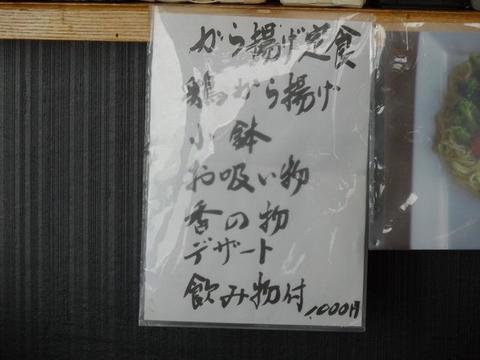 がら揚げ定食
鶏がら揚げ
小鉢
お吸い物
香の物
デザート
飲み物付
1000円